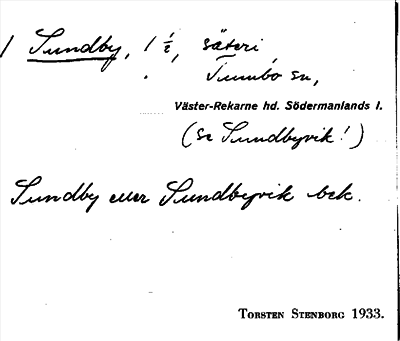 / Sundby, 1 ½, säteri
Tumbo sn,
Väster-Rekarne hd. Södermanlands l.
(se Sundbyvik!)
Sundby eller Sundbyvik bek.
Torsten Stenborg 1933.